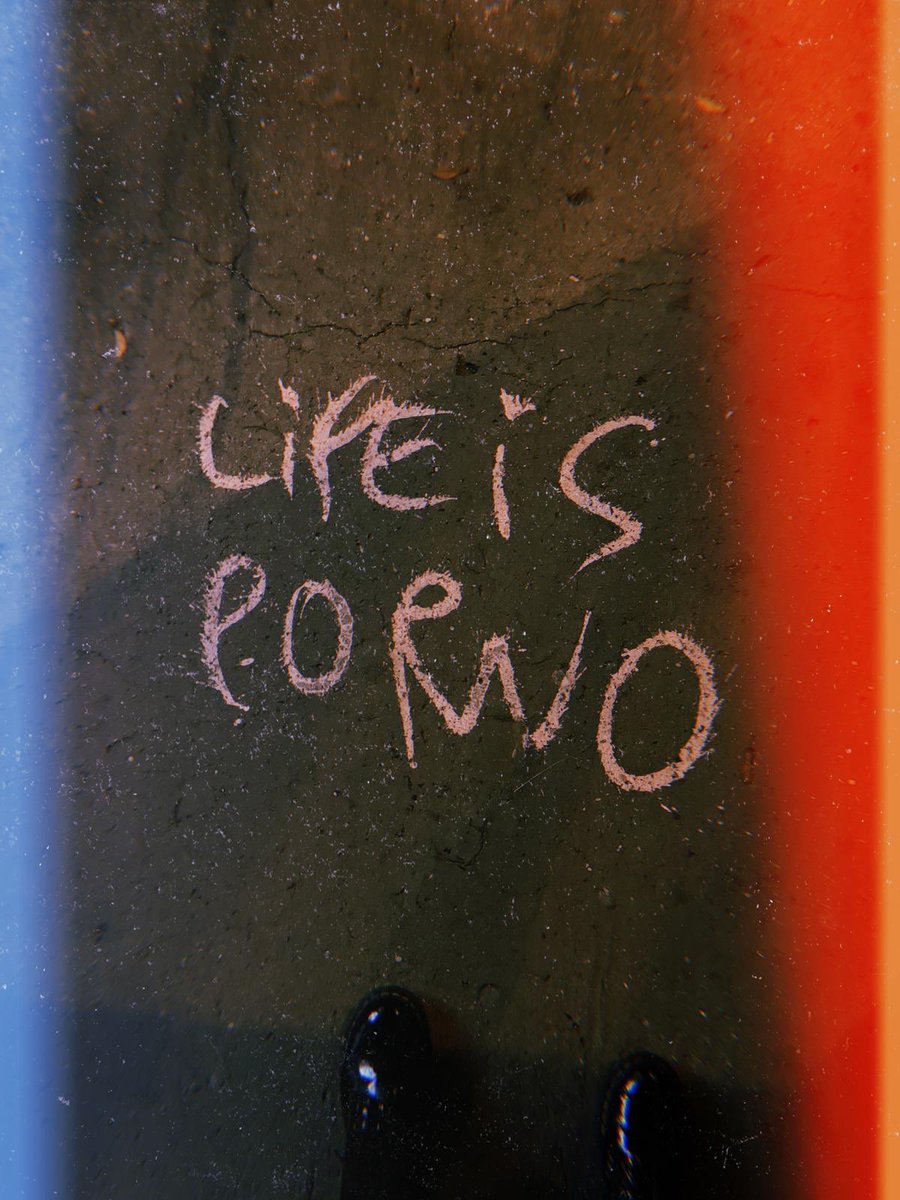 LiFE iS
PORNO